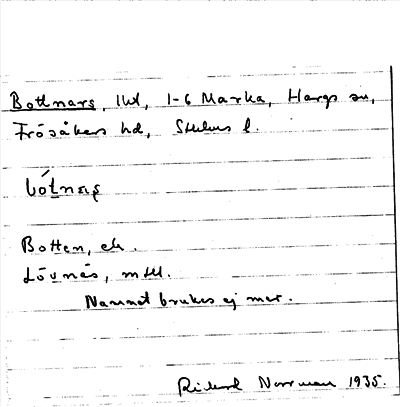 Bottnars, lkl, 1-6 Marka, Hargs sn,
Frösåkers hd, Sthlms l.
Botten, ek.
Lövnäs, mtl.
Namnet brukes ej mer.
Rikard Norrman 1935.